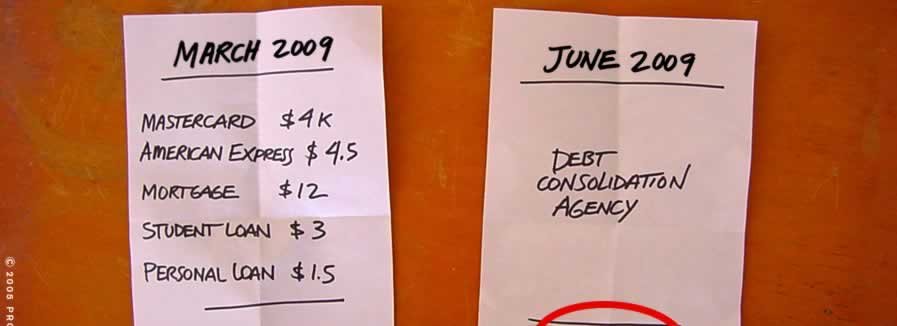 MARCH 2009
MASTERCARD $4K
AMERICAN EXPRESS $4.5
MORTGAGE $12
STUDENT LOAN $3
PERSONAL LOAN $1.5
JUNE 2009
DEBT
CONSOLIDATION
AGENCY
© 2005 PRO